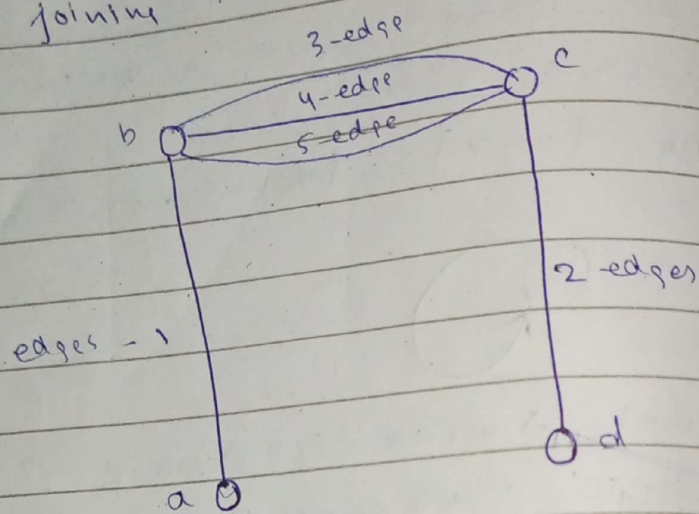 joining
3-edge
c
4-edge
b
5-edge
2-edges
edges - 1
d
a